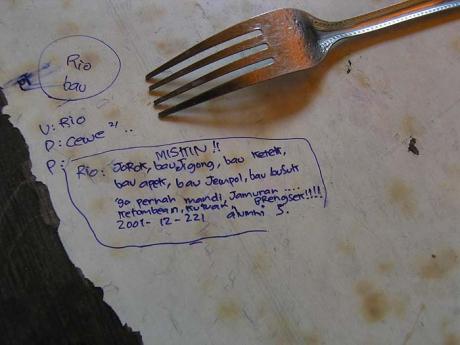 Rio
bau
U: Rio
D: Cewe 2x ..
P:
MISKIN !!
Rio: Jorok, bau Jigong, bau ketek,
bau apek, bau Jempol, bau busuk
ga pernah mandi, Jamuran ....
ketombean, kutuan, BRengsek!!!!
2001-12-221 alumni S.